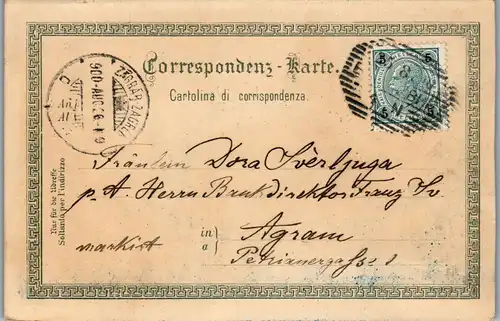 Correspondenz-Karte.
Cartolina di corrispondenza.
ZÁGRÁB ZAGREB
5 5
Nur für die Adresse
Soltanto per l'indirizzo
Fräulein Dora Šverljuga
p. A. Herrn Bankdirektor Franz Šv.
in
a
Agram
markirt
Petrinergasse 1